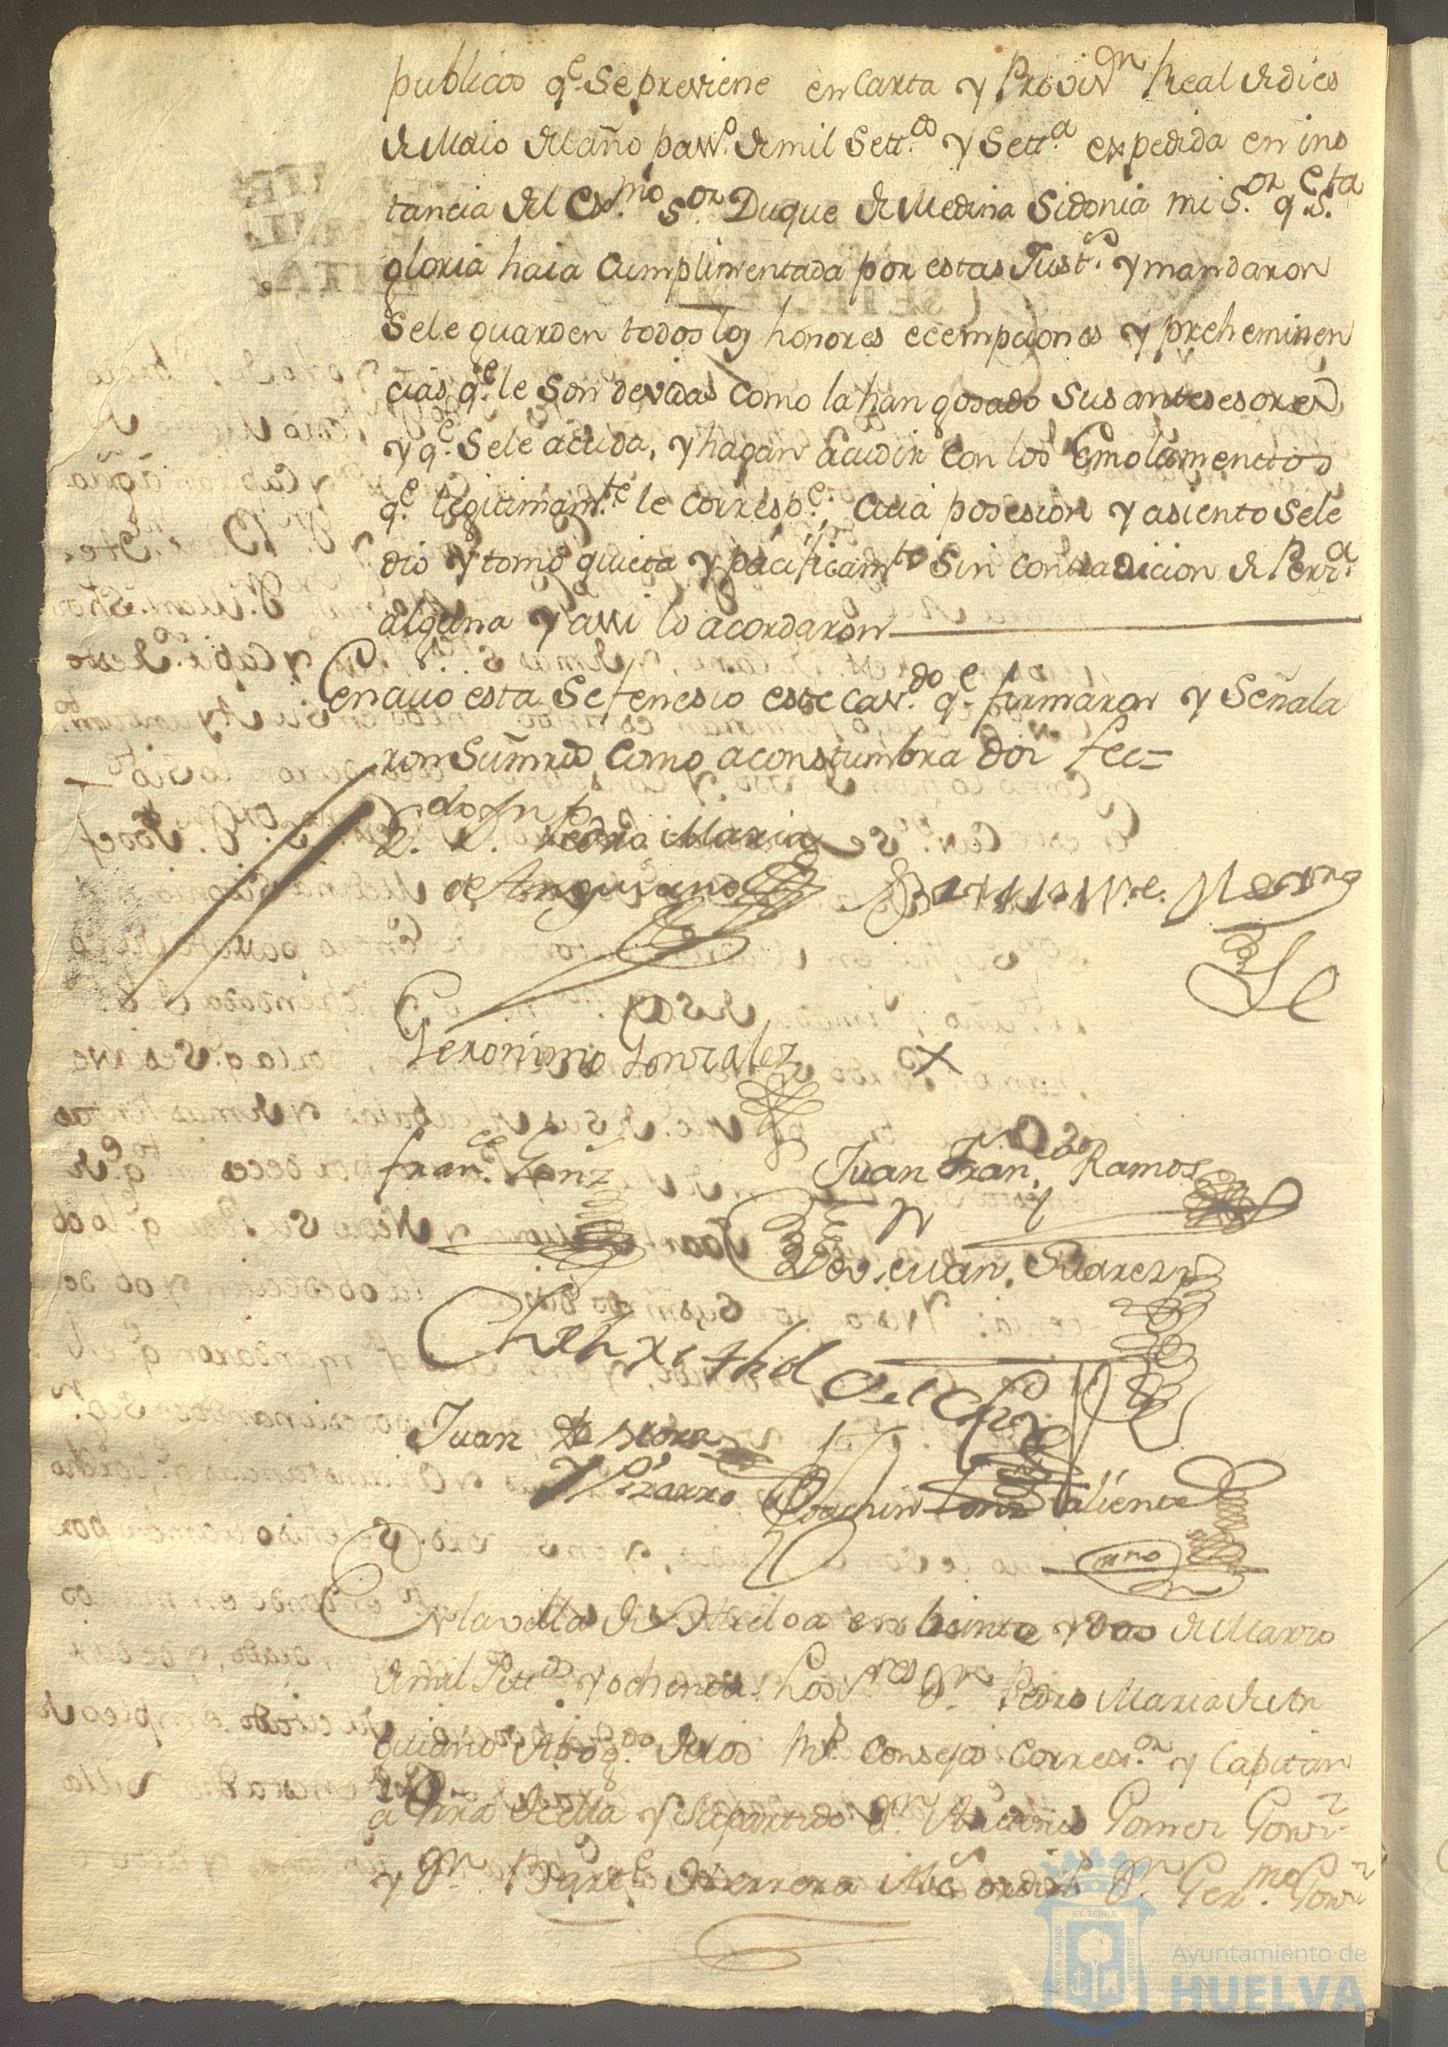 publicos q.e se previene en Carta y Provis.n Real de dies
de Maio del año pass.o de mil Set.os y Set.a expedida en ins
tancia del Ex.mo S.or Duque de Medina Sidonia mi S.or q.e S.ta
gloria haia Cumplimentada por estas Just.s y mandaron
Sele guarden todos los honores ecempciones y preheminen
cias q.e le son devidas como la han gosado sus antesesores
y q.e Sele acuda, y hagan acudir con los Emolumenctos
q.e legitimam.te le corresp.e; cuia posesion y asiento sele
dio y tomo quieta y pacificam.te sin contradicion de Pers.a
alguna y assi lo acordaron
en cuio esta se fenesio este cav.do q.e firmaron y Señala
ron Sus mrds como aconstumbra doi fee=
L.do D.n Pedro Maria
de Anguiano
Geronimo Gonzalez
X
Fran.co Gonz
Juan Fran.co Ramos
Juan Suarez
Juan de Mora
Pizarro
Joachin Gonz Valiente
En la villa de Huelva en beinte y dos de Marzo
de mil Sett.os y ochenta Los S.res D.n Pedro Maria de An
guiano Abog.do de los R.s Consejos Corregi.or y Capitan
a Grra de ella y su partido D.n Gomez Gonz
y D.n Bart.e Herrera Al.s ordin.s D.n Ger.mo Gonz
Ayuntamiento de
HUELVA